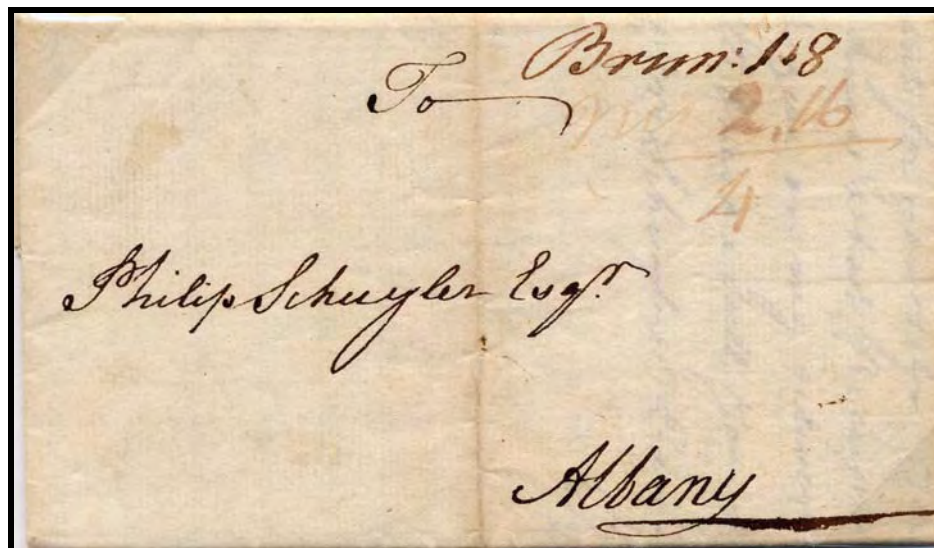 Brun: 1 8
To
2,16
4
Philip Schuyler Esqr.
Albany